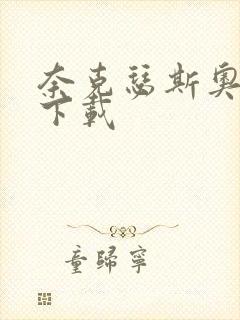 奈克瑟斯奥
下載
童歸寧